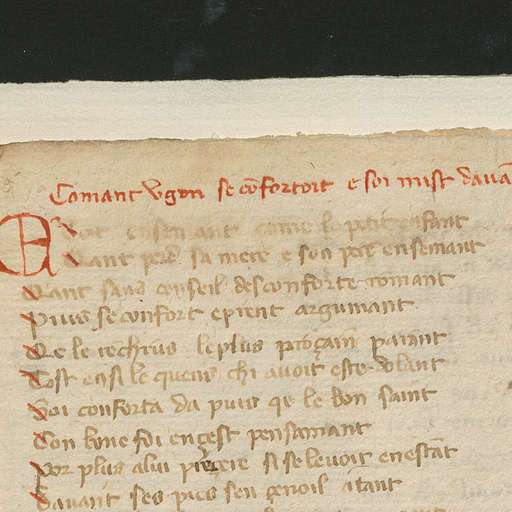 Comant Vgon se cōfortoit e soi mist dauā
come le petit enfant
quant perd sa mere e son pere ensemant
sans conseil desconforte romant
Puis se confort e prent argumant
De le techrus le plus proçain parant
Tost ensi le quens chi auoit este dolant
Soi conforta da puis qe le bon saint
Con bone foi en cest pensamant
Por plus a lui preere si se leuoit en estāt
Dauant ses pies sen genoil atant